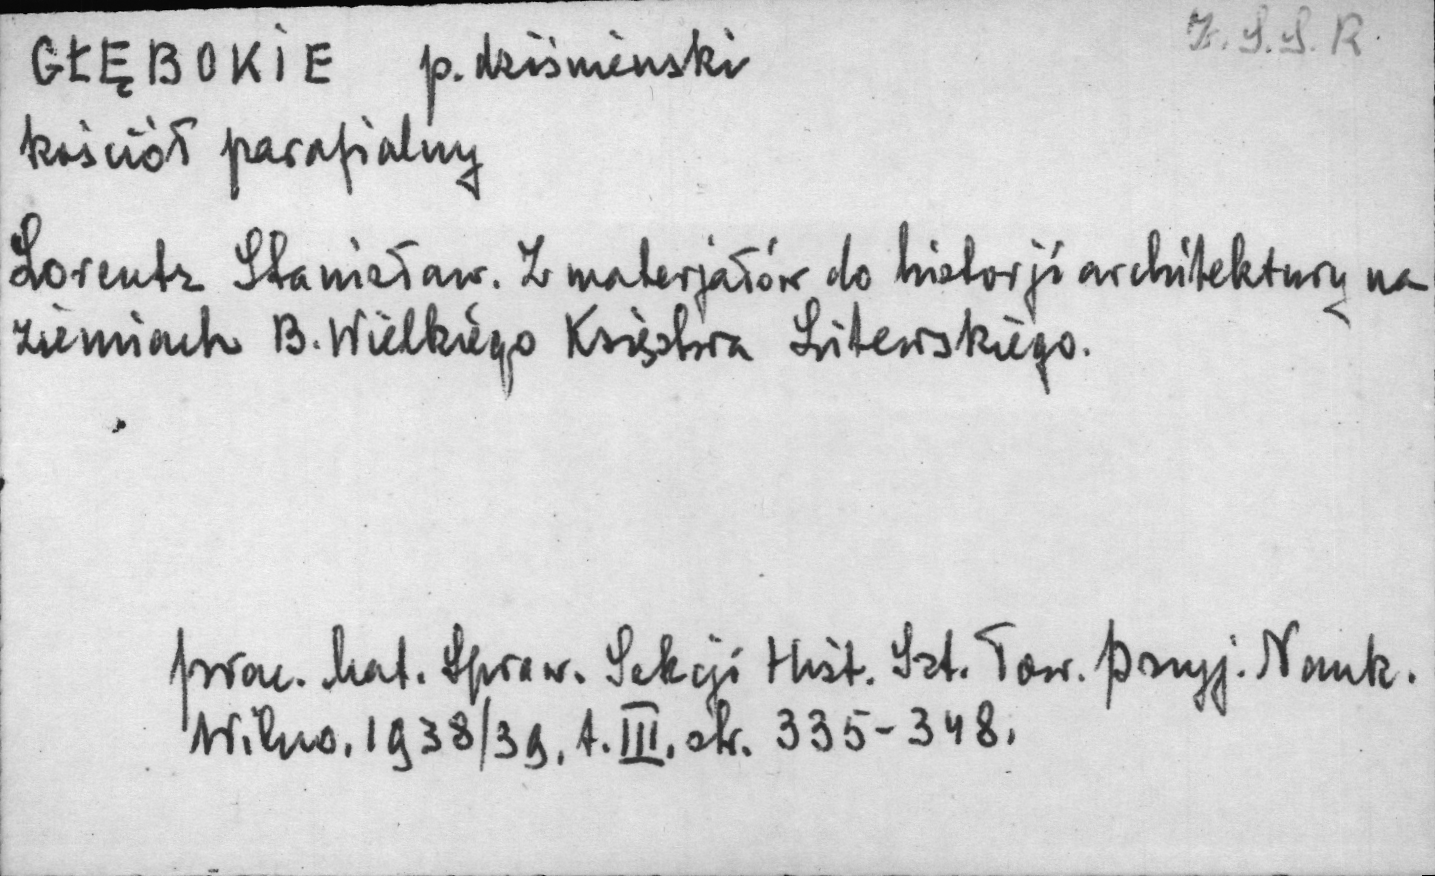 Z.S.S.R.
GŁĘBOKIE p. dziśnieński
kościół parafialny
Lorentz Stanisław. Z materjałów do historji architektury na
ziemiach B. Wielkiego Księstwa Litewskiego.
prac. Mat. Spraw. Sekcji Hist. Szt. Tow. Przyj. Nauk.
Wilno. 1938/39. t. III. str. 335-348.